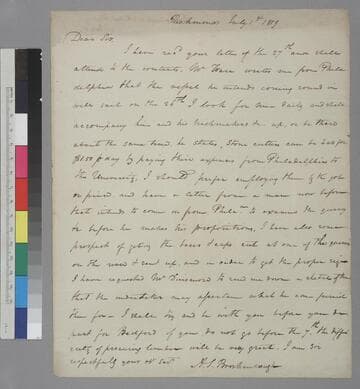 Richmond July 1st 1819
Dear Sir,
I have recd your letter of the 27th and shall
attend to the contents, Mr Ware writes me from Phila
delphia that the vessel he intends coming round in
will sail on the 26th I look for him daily and shall
accompany him and his bricklayers up, or be there
about the same time, he states, Stone cutters can be had for
$1.50 P day by paying their expences from Philadelphia to
the University, I should prefer employing them by the job
or piece and have a letter from a man now before
that intends to come on from Phila to examine the quarry
before he makes his propositions, I have also some
prospect of getting the bases & caps cut at one of the quarries
on the river & sent up, and in order to get the proper
I have requested Mr Dinsmore to send me down a sketch of them
that the undertaker may ascertain which he can furnish
them for I shall try and be with you before you de
part for Bedford if you do not go before the 7th the diffi
culty of procuring lumber will be very great. I am Sir
respectfully your ob Sert
A. S. Brockenbrough